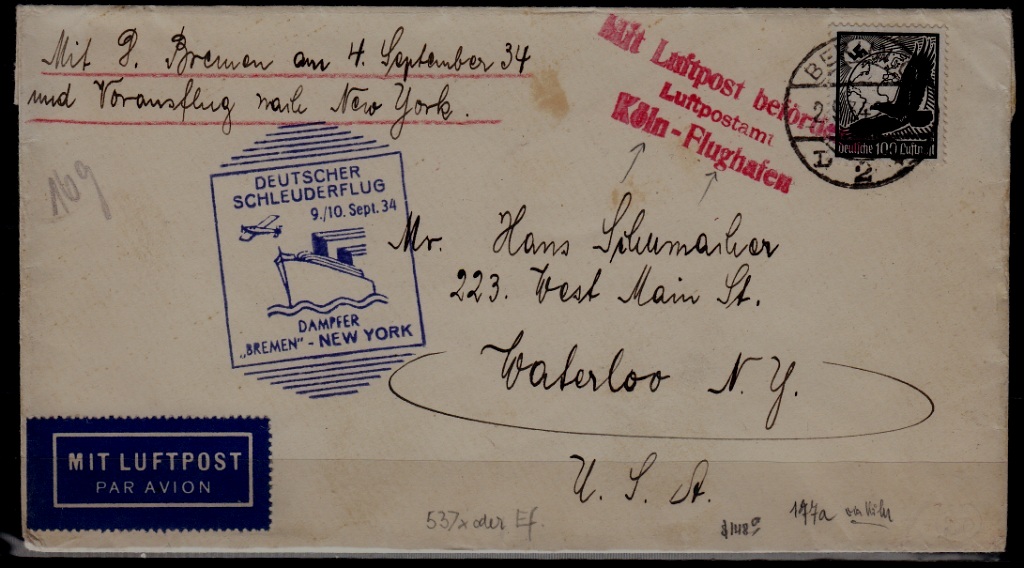 Mit D. Bremen am 4. September 34
und Vorausflug nach New York.
Mit Luftpost befördert
Luftpostamt
Köln-Flughafen
deutsche 100 Luftpost
2
169
DEUTSCHER
SCHLEUDERFLUG
9./10. Sept. 34
DAMPFER
„BREMEN" - NEW YORK
Mr. Hans Schumacher
223. West Main St.
Waterloo N.Y.
U. S. A.
MIT LUFTPOST
PAR AVION
537x oder Ef.
177a von Köln